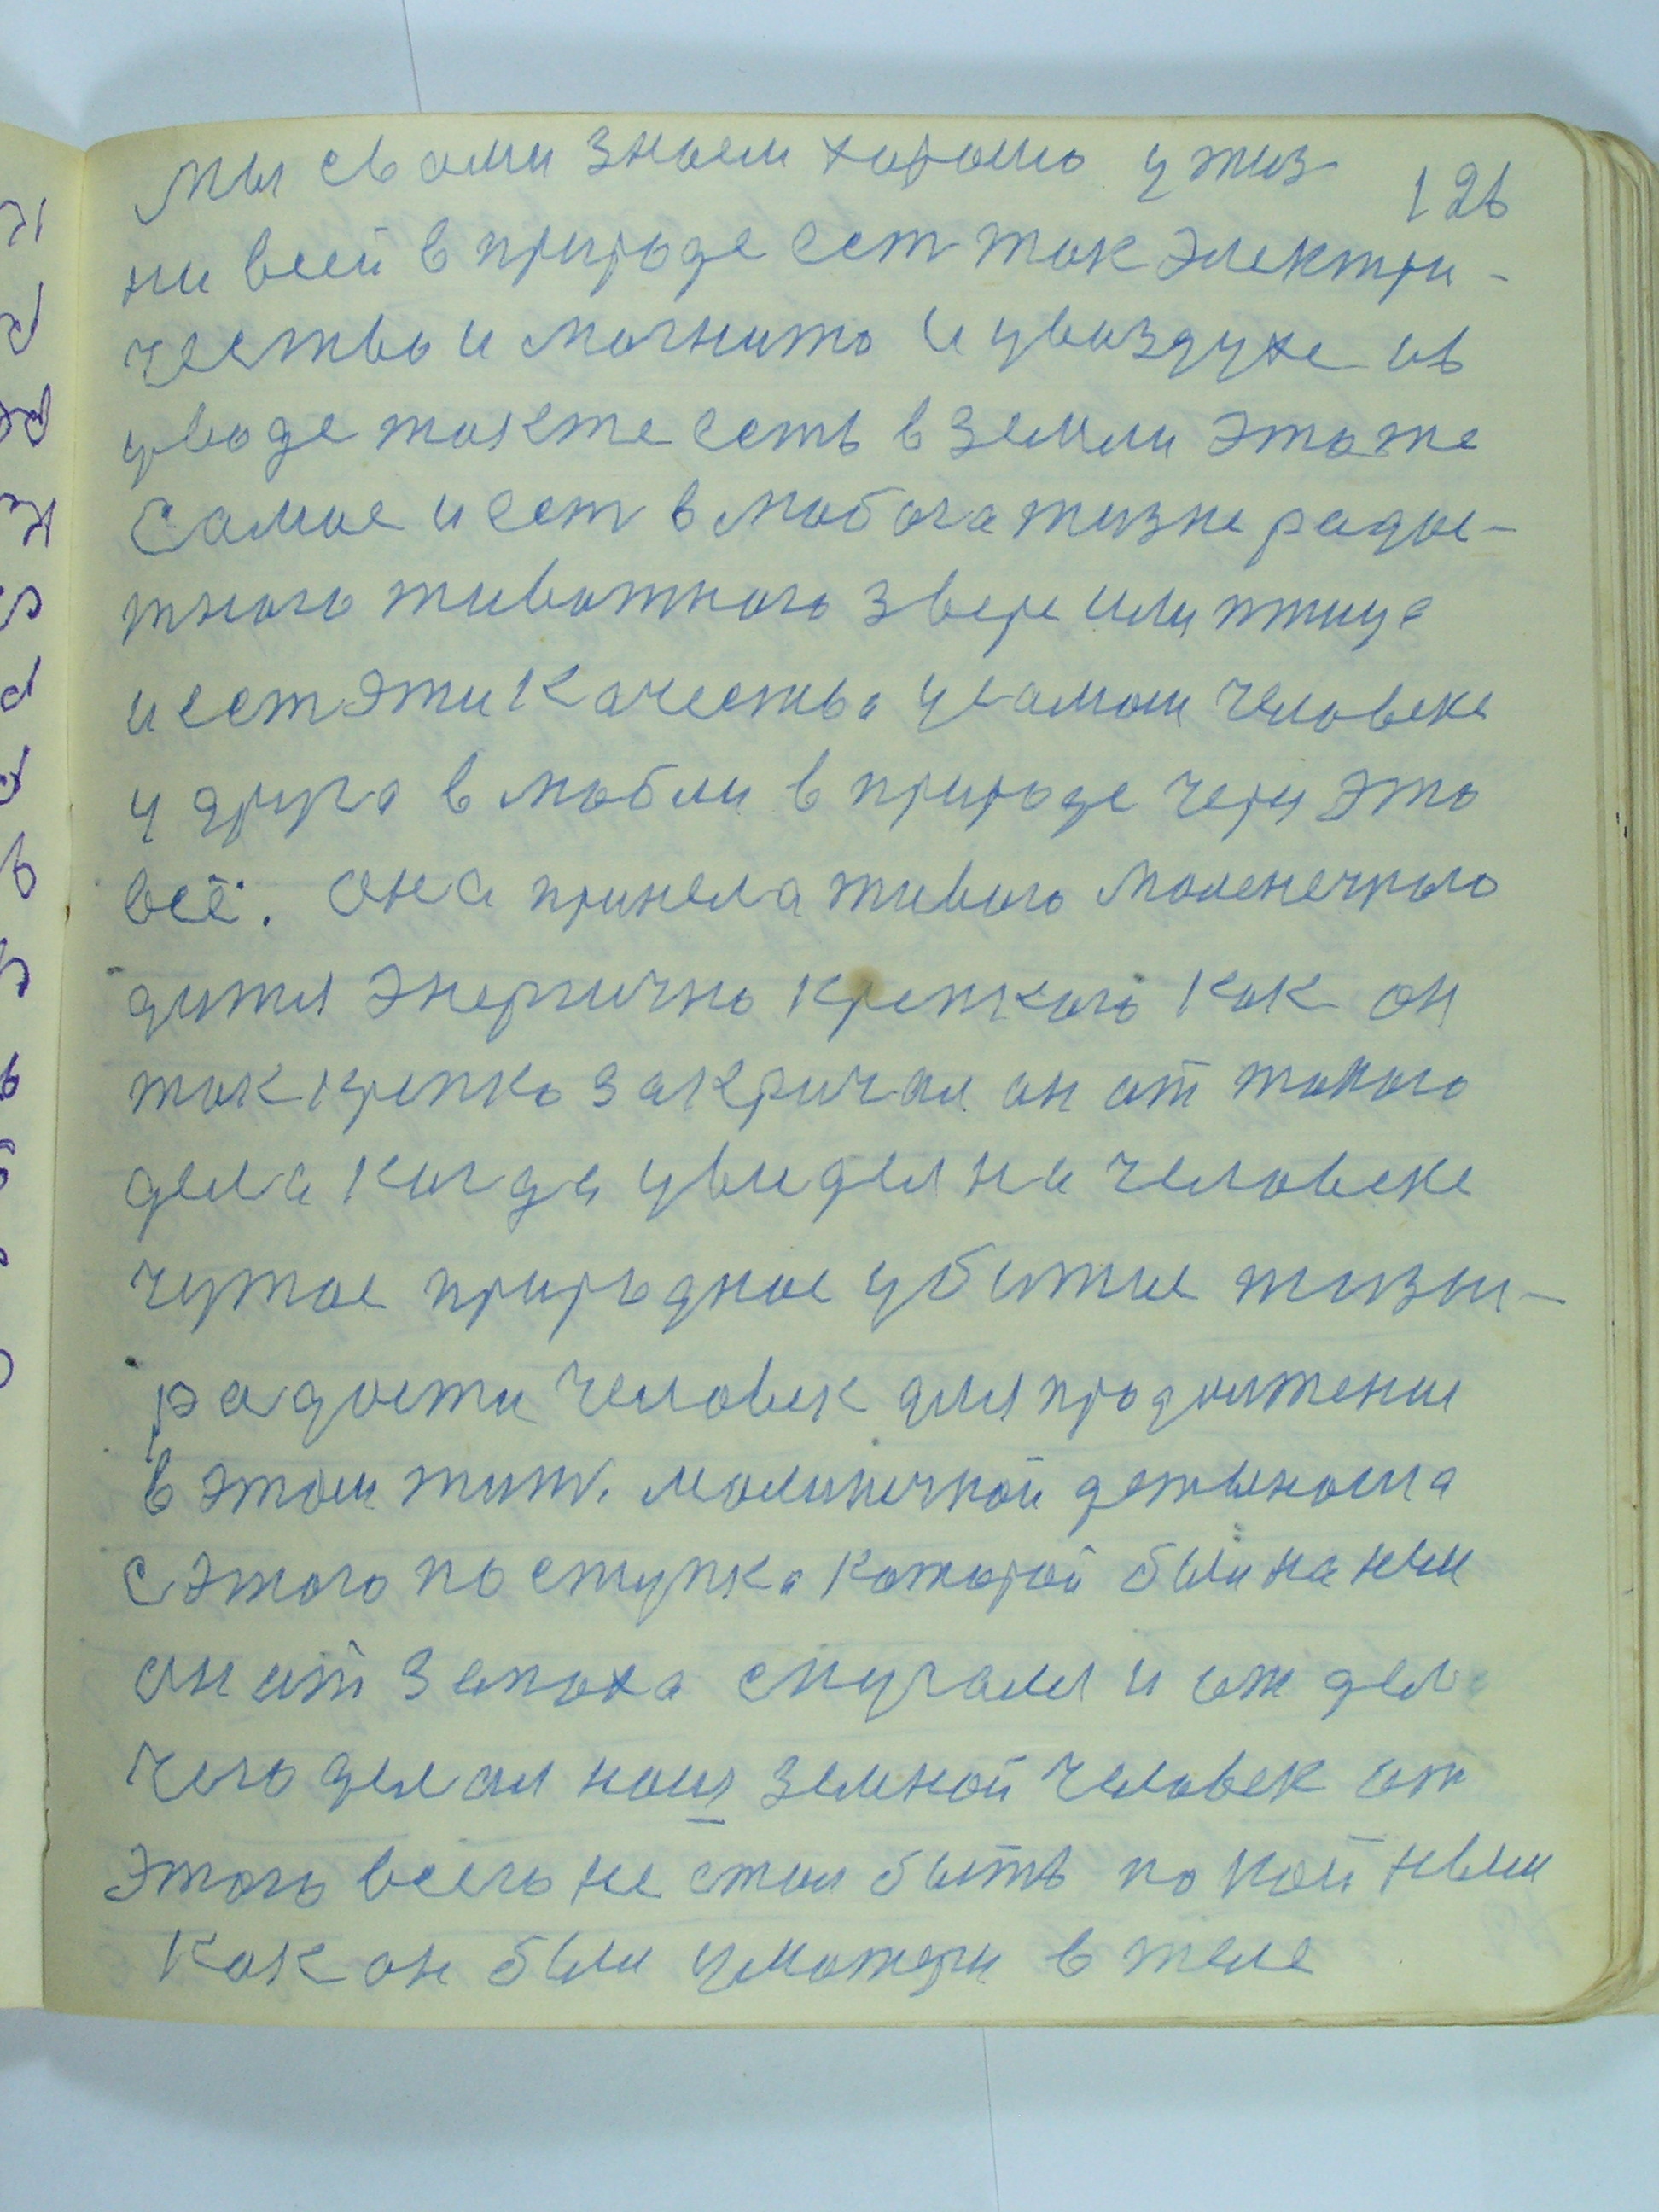 126
мы свами знаем хорошо у жиз
ни всей в природе ест ток электри-
чество и могнито и увоздухе ив
уводе такте есть в земли этоже
самое и ест в любога жизне радос-
тного животного звере или птице
и ест эти качества усамом человеке
у друга в любли в природе через это
всё. она принела живого моленечкого
дитя энергично крепкого как он
так крепко закричал он от такого
дела когда увидел на человеке
чужое природное убитие жизни-
радости человек для продолжения
в этом жит. молинечкой детынаша
с этого поступка которой были на ним
он от запаха спугался и от дела
чего делал наш земной человек от
этого всего не стал быть покойным
как он были уматери в теле